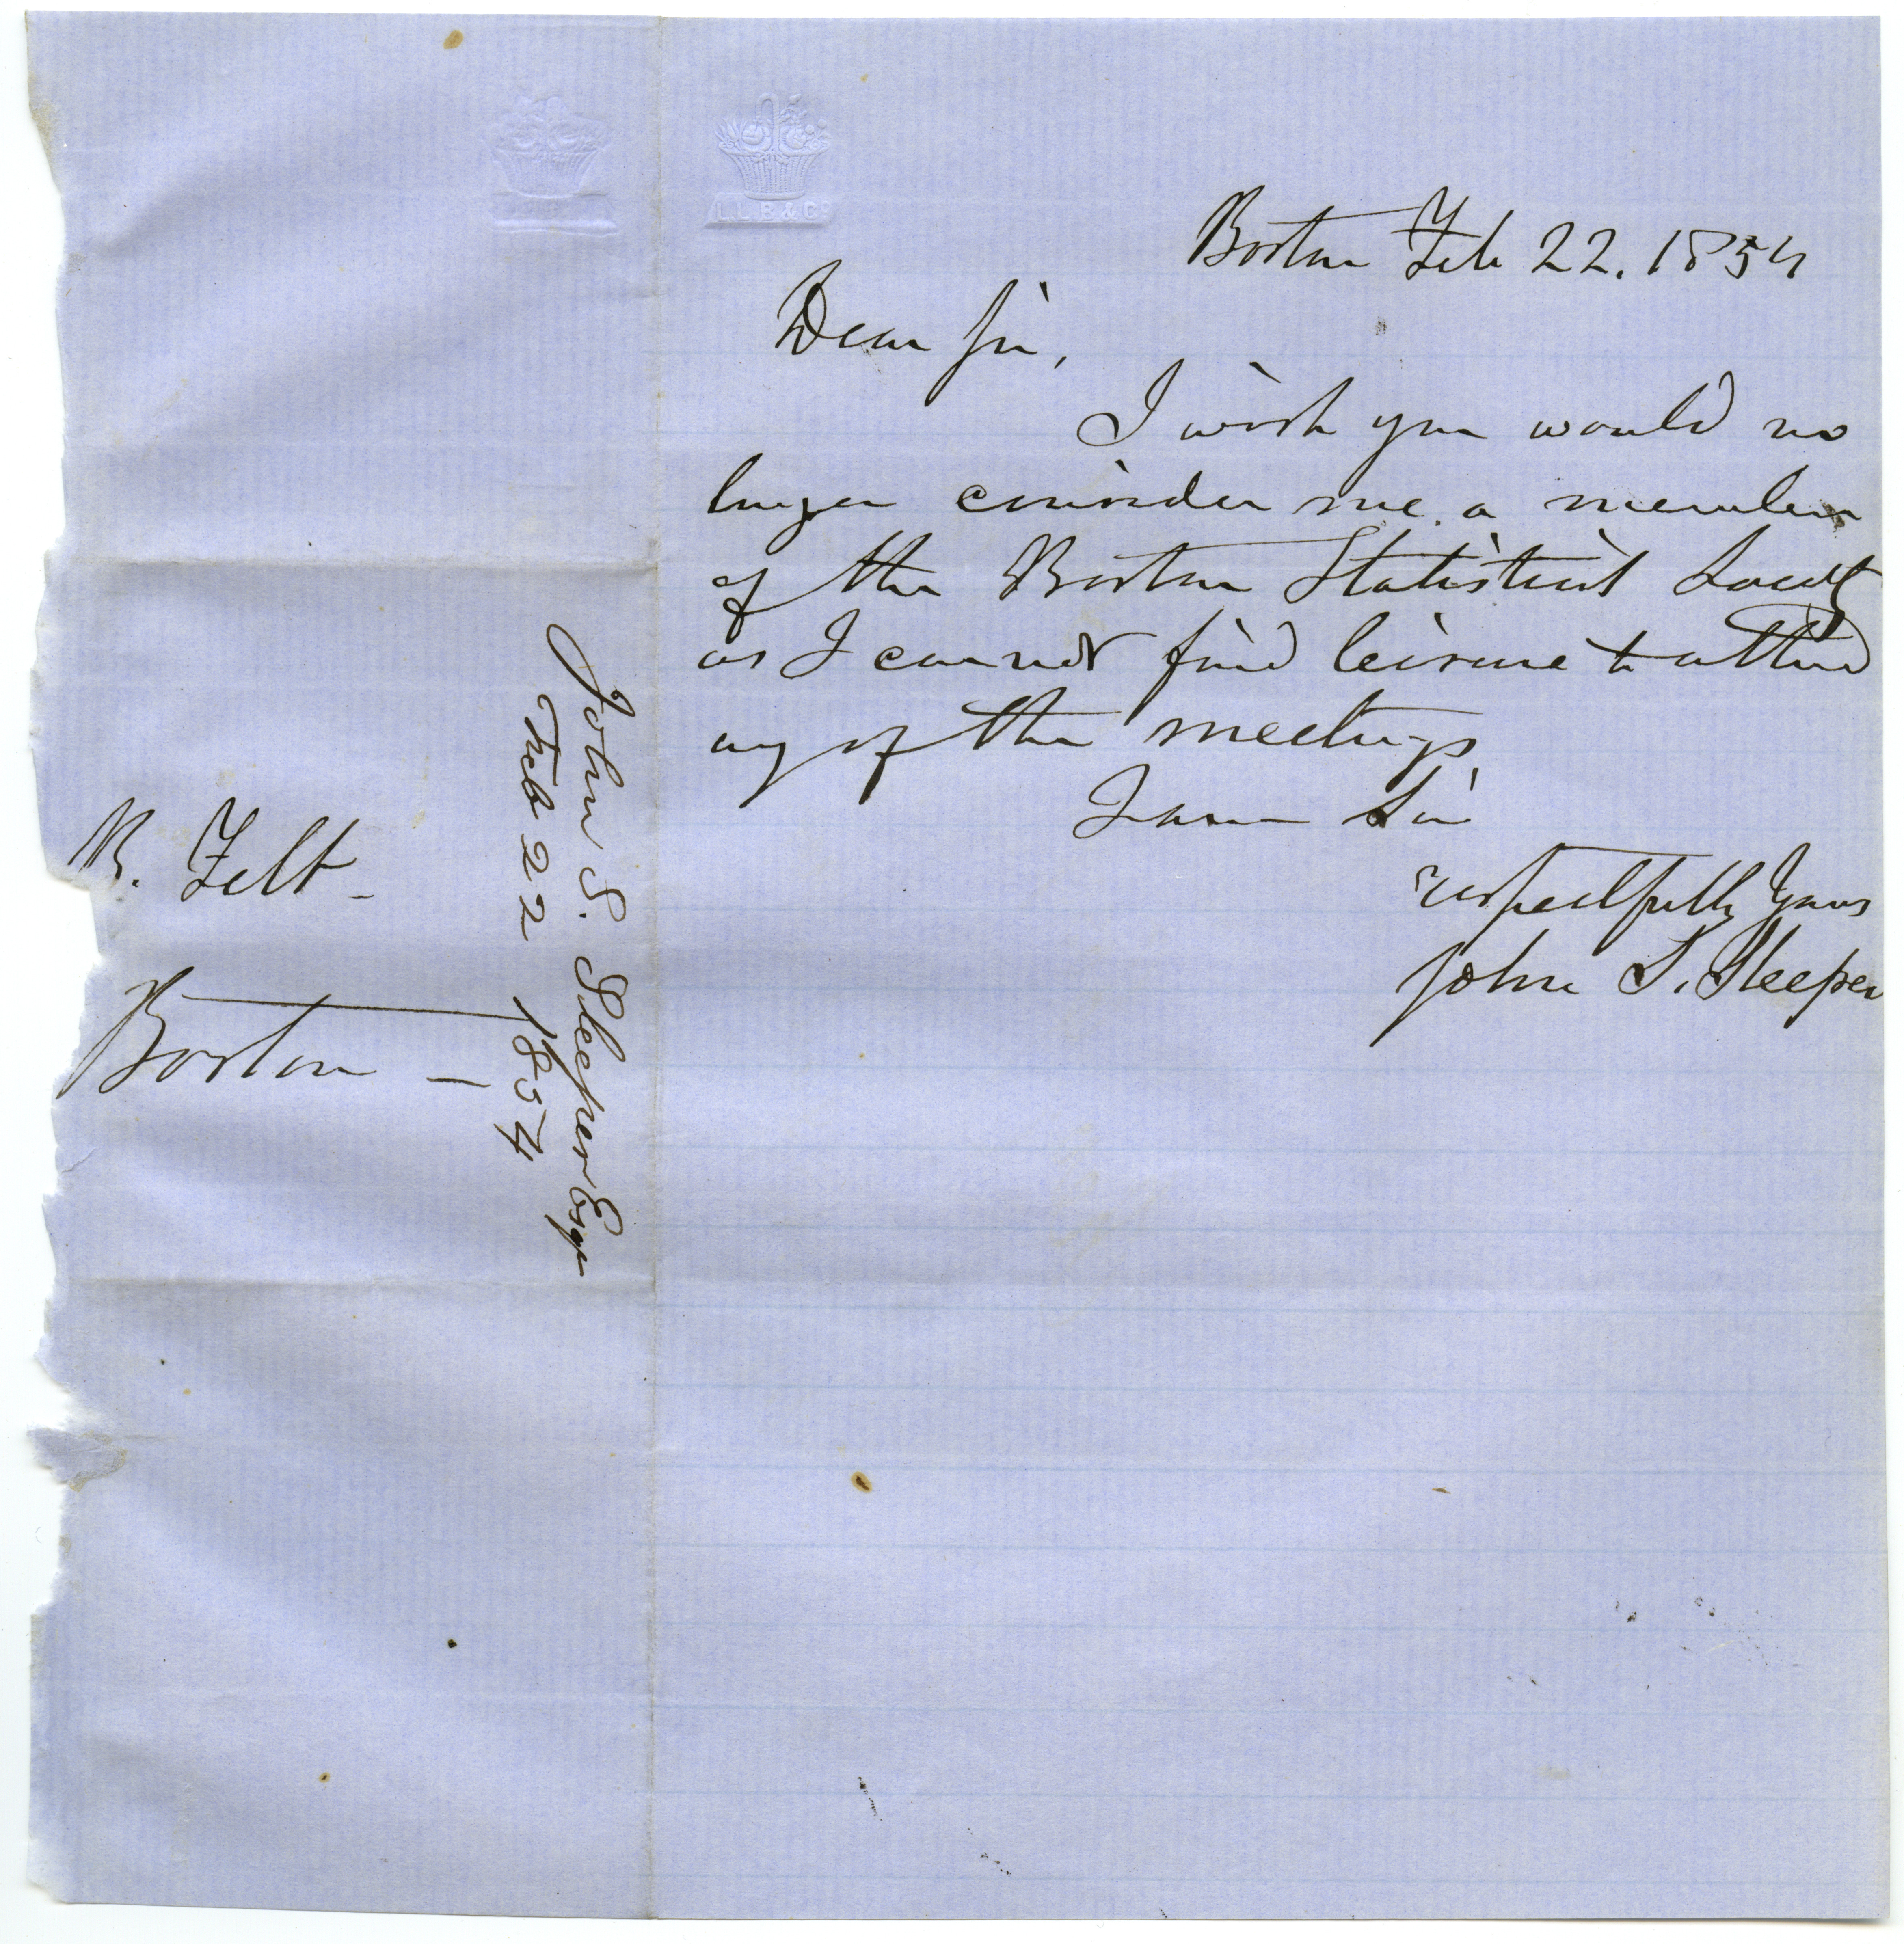 L.L.B & Co
Boston Feb 22. 1854
Dear Sir,
I wish you would no
longer consider me a member
of the Boston Statistical Society
as I cannot find leisure to attend
any of the meetings
I am Sir
respectfully Yours
John S. Sleeper
John S. Sleeper Esqr
Feb 22 1854
B. Felt -
Boston -